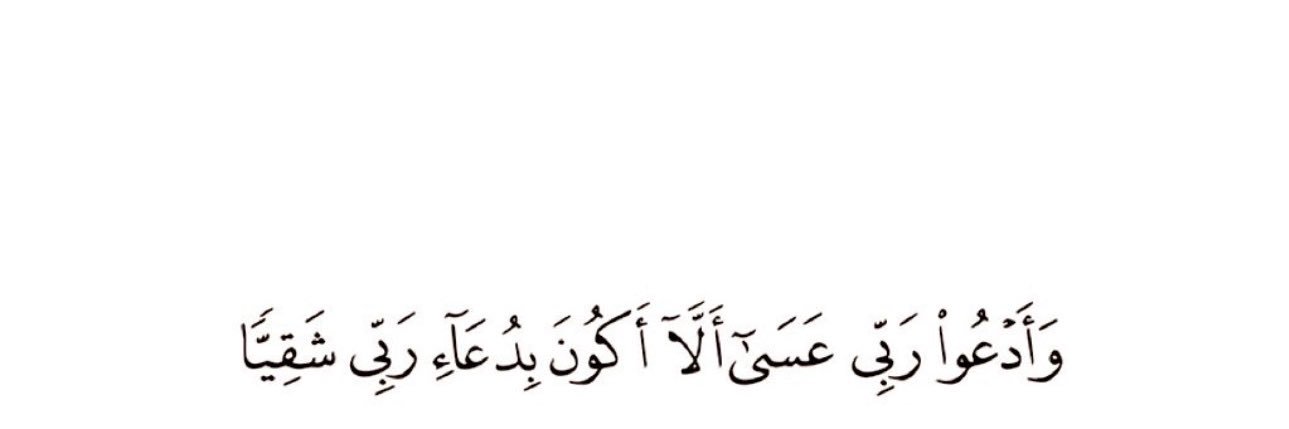 وَأَدۡعُوا۟ رَبِّى عَسَىٰٓ أَلَّآ أَكُونَ بِدُعَآءِ رَبِّى شَقِيًّا